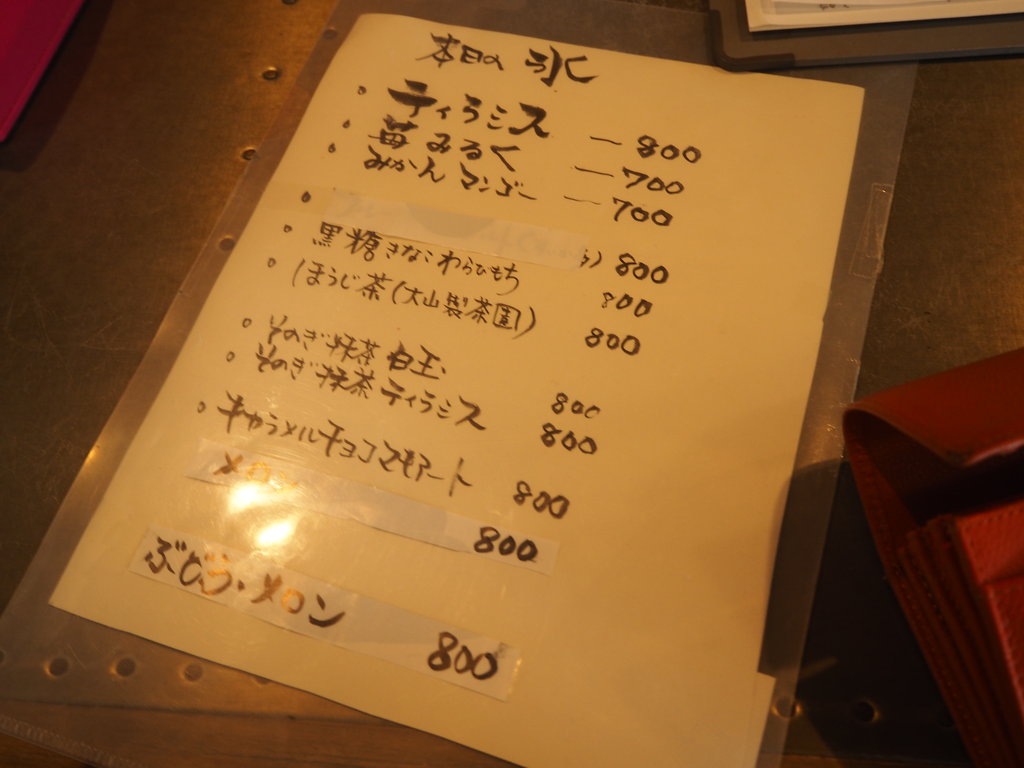 本日の 氷
・ ティラミス — 800
・ 苺みるく — 700
・ みかん マンゴー — 700
・ 800
・ 黒糖きなこわらびもち 800
・ ほうじ茶(大山製茶園) 800
・ そのぎ抹茶 白玉 800
・ そのぎ抹茶 ティラミス 800
・ キャラメルチョコマキアート 800
メロン 800
ぶどう・メロン 800